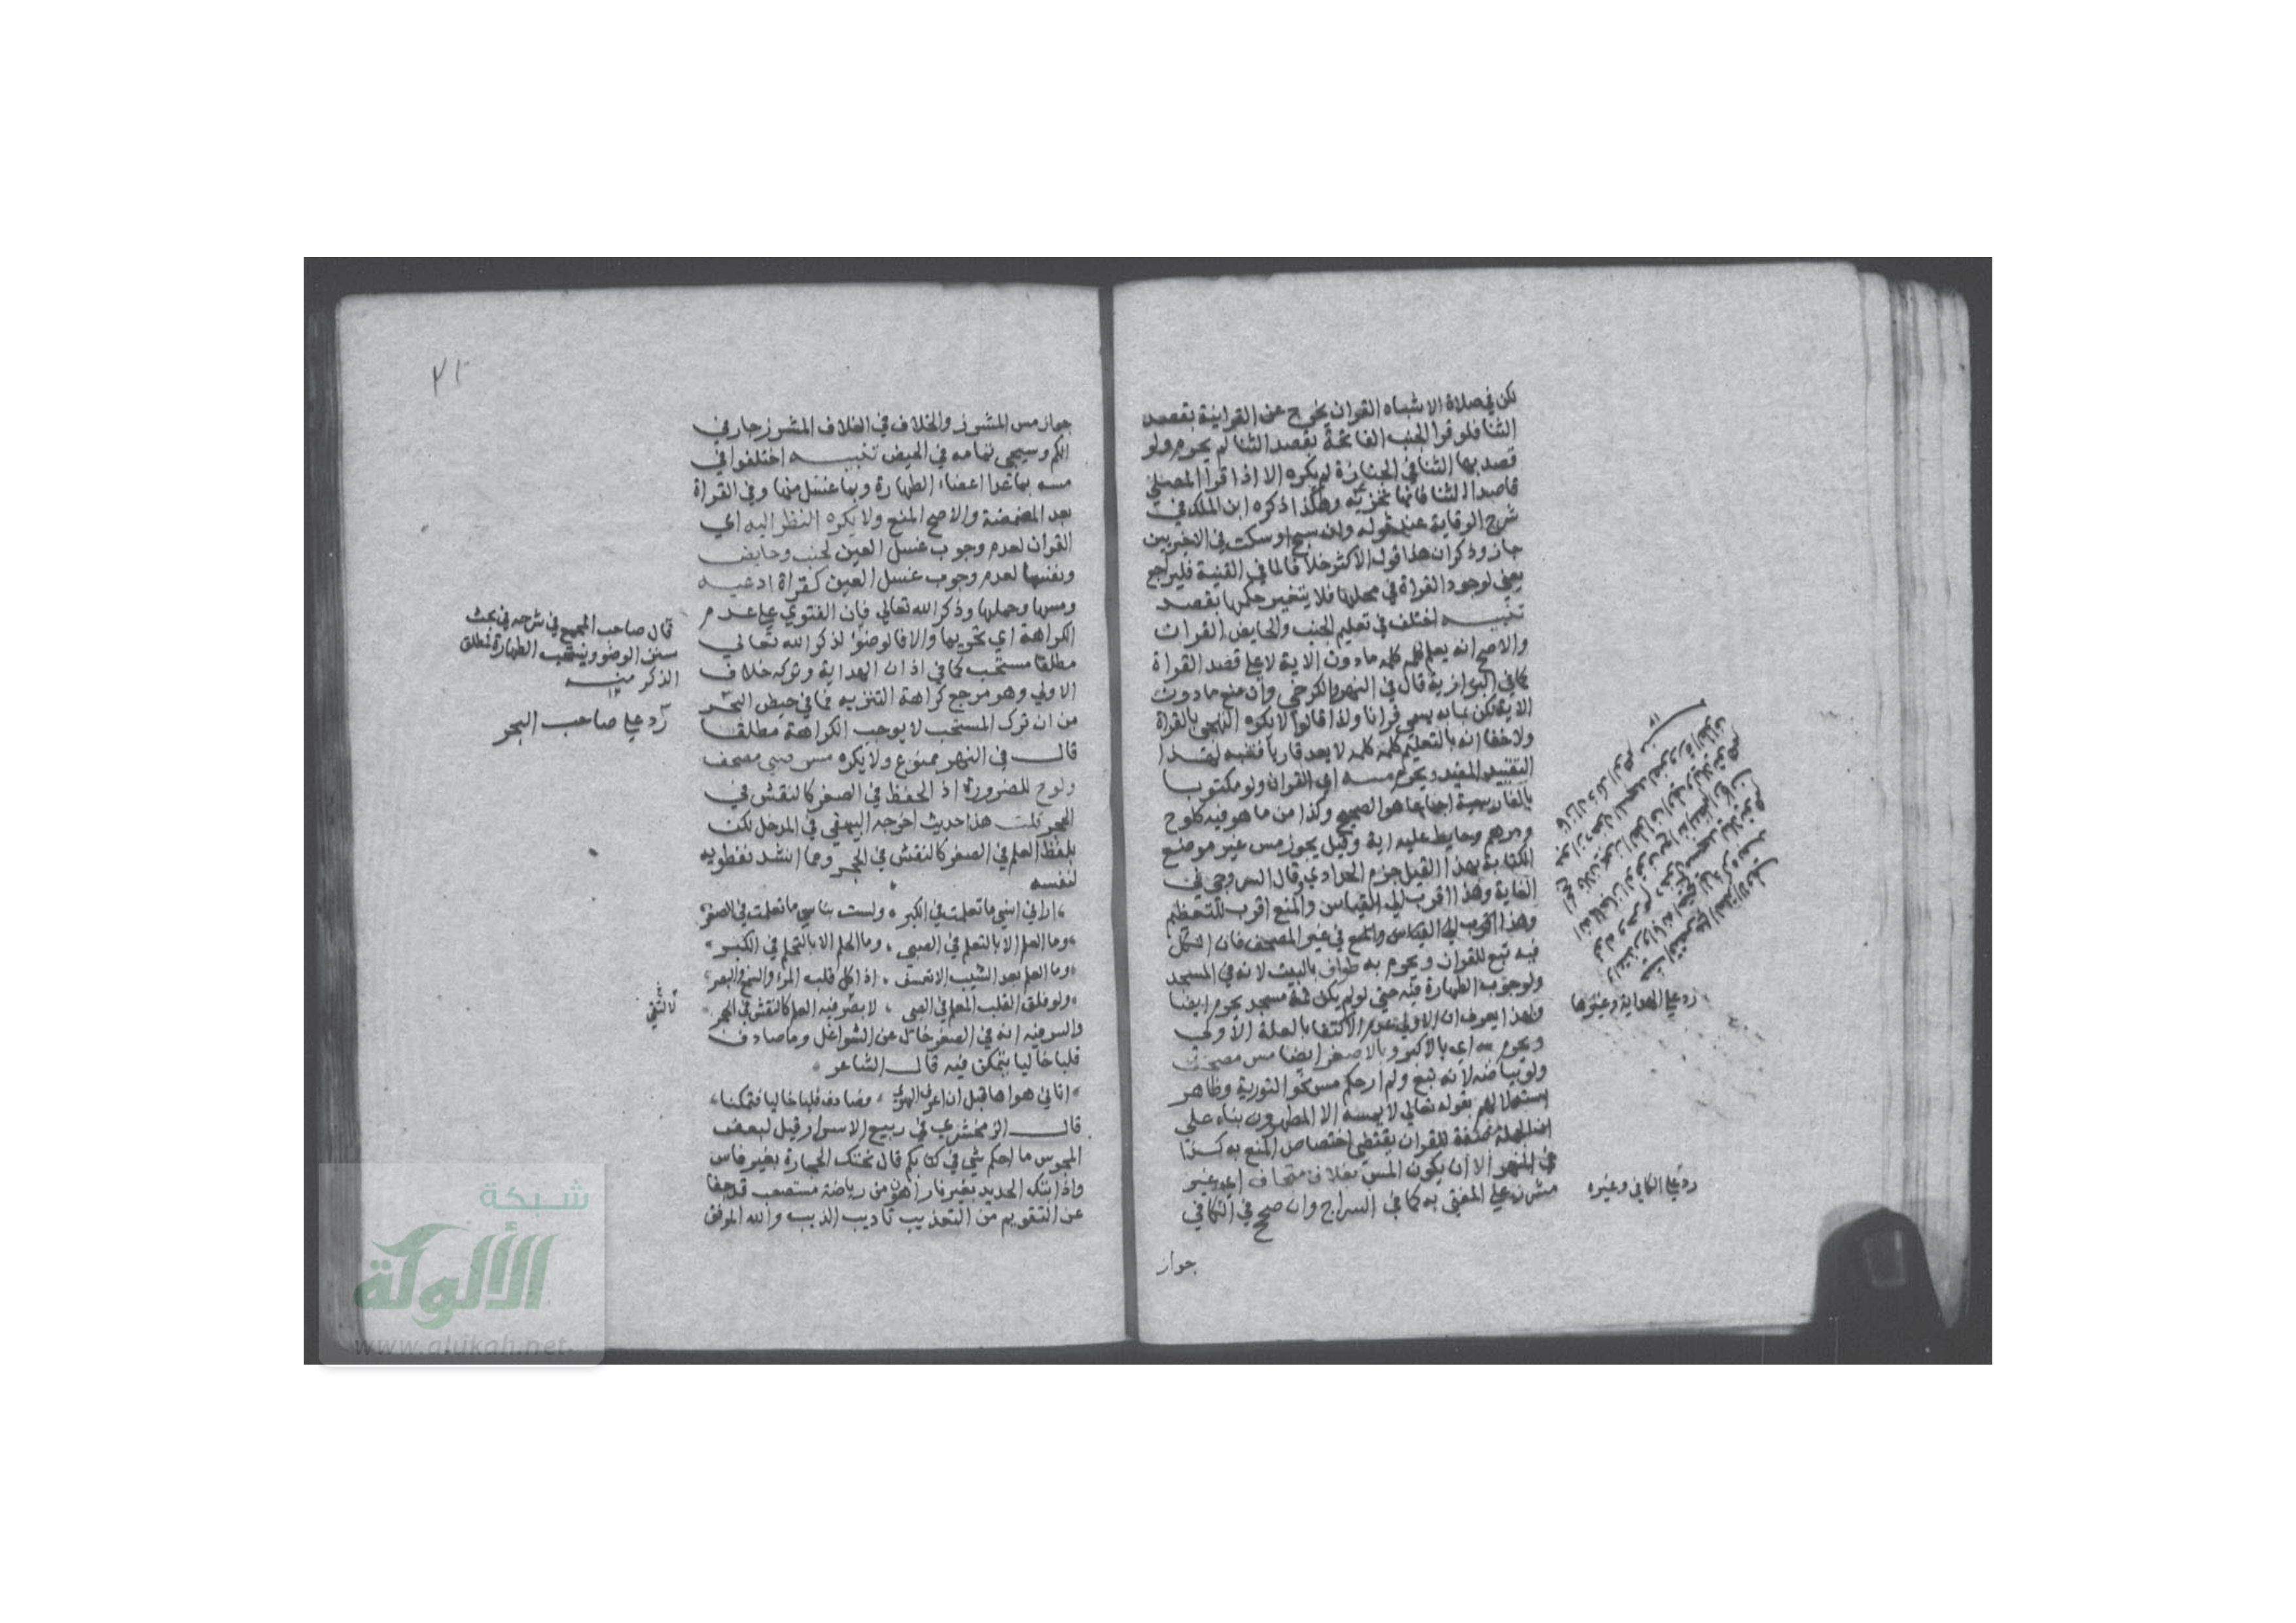 لكن في صلاة الاشباه القران يخرج عن القرانية بقصد
الثنا فلو قرا الجنب الفاتحة بقصد الثنا لم يحرم ولو
قصد بها الثنا في الجنازة لم يكره الا اذا قرا المصلي
قاصدا الثنا فانها تجزيه وهكذا ذكره ابن الملك في
شرح الوقاية عند قوله وان سبح او سكت في الاخريين
جاز وذكر ان هذا قول الاكثر خلافا لما في القنية فليراجع
يعني لوجود القراة في محلها فلا يتغير حكمها بقصد
تنبيه اختلف في تعليم الجنب والحايض القران
والاصح انه يعلم كلمة كلمة ما دون الاية لا على قصد القراة
كما في البزازية قال في النهر والكرخي وان منع ما دون
الاية لكن بما به يسمى قرانا ولذا قالوا لا يكره التهجي بالقراة
ولا خفا انه بالتعليم كلمة كلمة لا يعد قاريا فتنبه لهذا
التقييد المفيد ويحرم مسه اي القران ولو مكتوبا
بالفارسية اجماعا هو الصحيح وكذا من ما هو فيه كلوح
ودرهم وحايط عليه اية وقيل يجوز مس غير موضع
الكتابة بهذا القيل جزم الحدادي وقال السروجي في
الغاية وهذا اقرب الى القياس والمنع اقرب للتعظيم
وهذا اقرب الى القياس والمنع في غير المصحف فان الكل
فيه تبع للقران ويحرم به طواف بالبيت لانه في المسجد
ولوجوب الطهارة فيه حتى لو لم يكن ثمة مسجد يحرم ايضا
وبهذا يعرف ان الاولى عدم الاكتفا بالعلة الاولى
ويحرم به اي بالاكبر وبالاصغر ايضا مس مصحف
ولو بياضه لانه تبع ولم ار حكم مس نحو التورية وظاهر
استدلالهم بقوله تعالى لا يمسه الا المطهرون بناء على
ان الجملة صفة للقران يقتضي اختصاص المنع به كذا
في النهر الا ان يكون المس بغلاف متجاف اي غير
مشرز على المفتى به كما في السراج وان صحح في الكافي
جواز
رد على الهداية وغيرها
رد على الكافي وغيره
٢١
جواز مس المشرز والخلاف في الغلاف المشرز جار في
الكم وسيجي تمامه في الحيض تنبيه اختلفوا في
مسه بما عدا اعضاء الطهارة وبما غسل منها وفي القراة
بعد المضمضة والاصح المنع ولا يكره النظر اليه اي
القران لعدم وجوب غسل العين لجنب وحايض
ونفسها لعدم وجوب غسل العين كقراة ادعية
ومسها وحملها وذكر الله تعالى فان الفتوي على عدم
الكراهة اي تحريما والا فالوضوا لذكر الله تعالى
مطلقا مستحب كما في اذان الهداية وتركه خلاف
الاولى وهو مرجع كراهة التنزيه فما في حيض البحر
من ان ترك المستحب لا يوجب الكراهة مطلقا
قال في النهر ممنوع ولا يكره مس صبي مصحف
ولوح للضرورة اذ الحفظ في الصغر كالنقش في
الحجر قلت هذا حديث اخرجه البيهقي في المدخل لكن
بلفظ العلم في الصغر كالنقش في الحجر ومما انشد نفطويه
لنفسه
اراني انسي ما تعلمت في الكبر ولست بناسي ما تعلمت في الصغر
وما العلم الا بالتعلم في الصبى وما الحلم الا بالتحلم في الكبر
وما العلم بعد الشيب الا تعسف اذا كل قلب المرء والسمع والبصر
ولو فلق القلب المعلم في الصبى لابصر فيه العلم كالنقش في الحجر
والسر فيه انه في الصغر خال عن الشواغل وما صادف
قلبا خاليا يتمكن فيه قال الشاعر
اتاني هواها قبل ان اعرف الهوى فصادف قلبا خاليا فتمكنا
قال الزمخشري في ربيع الاسرار قيل لبعض
المجوس ما احكم شي في كتابكم قال نحتك الحجارة بغير فاس
واذابتك الحديد بغير نار اهون من رياضة مستصعب قد جفا
عن التقويم من التهذيب تاديب الذيب والله الموفق
قال صاحب المجمع في شرحه في بحث
سنن الوضو ويستحب الطهارة لمطلق
الذكر منه
رد على صاحب البحر
شبكة
الألوكة
www.alukah.net